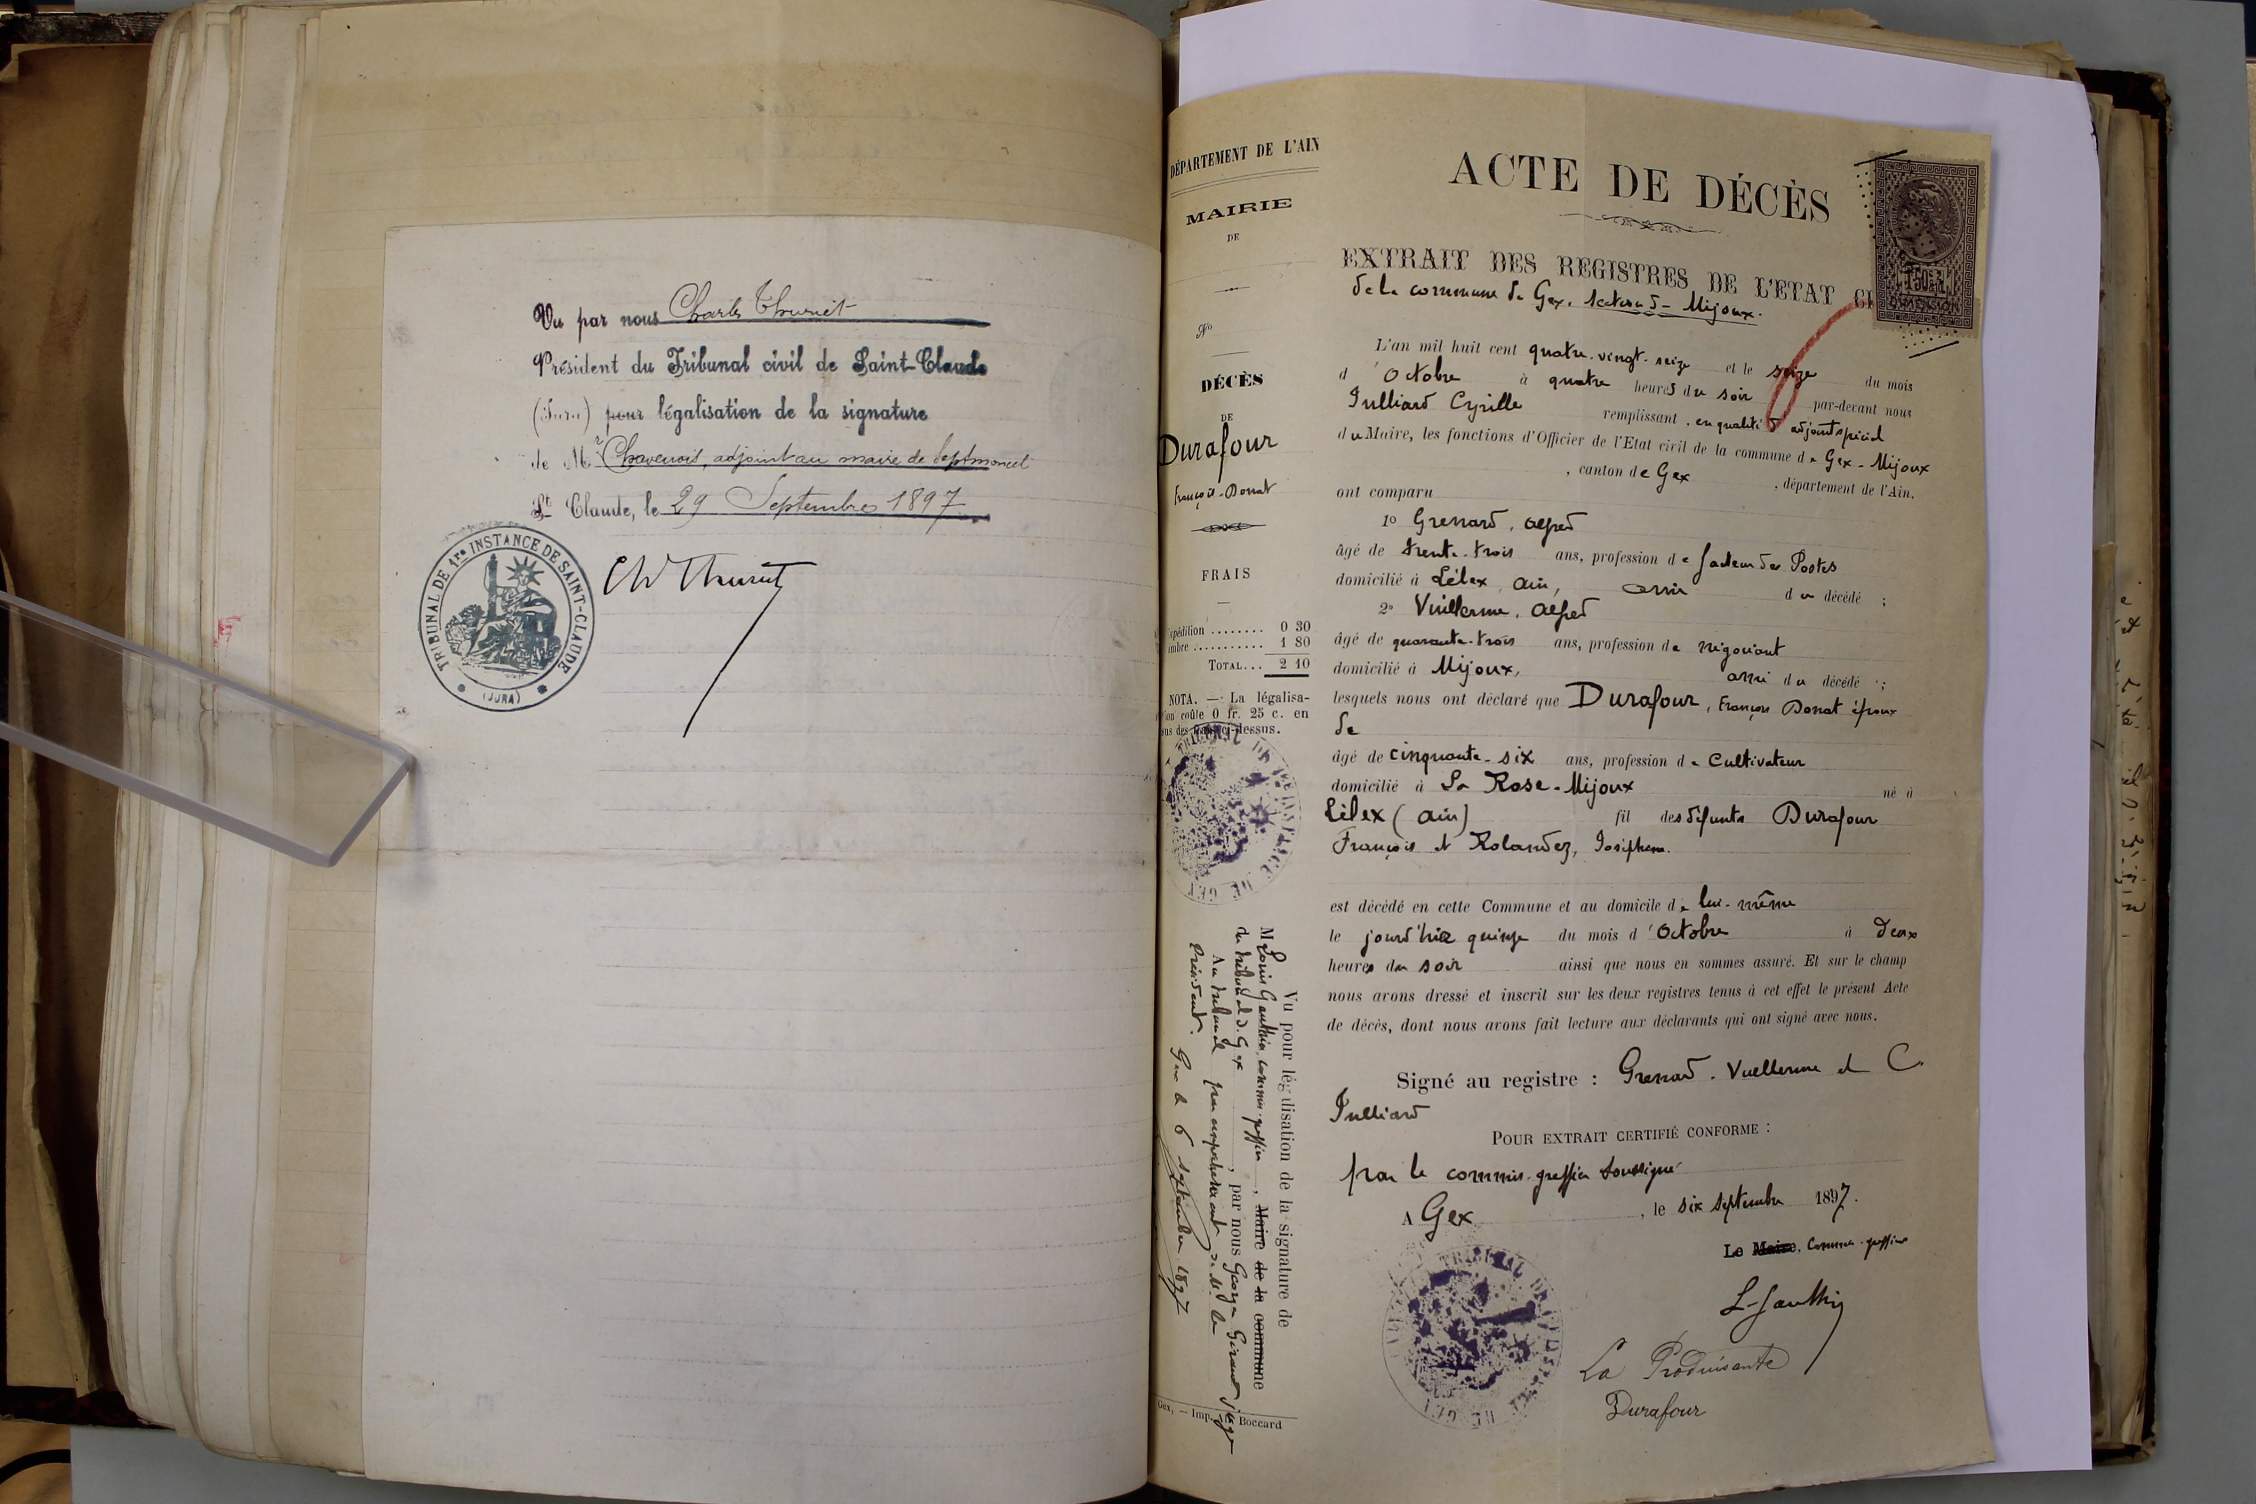 Vu par nous Charles Thurriet
Président du Tribunal civil de Saint-Claude
(Jura) pour légalisation de la signature
de Mr Chaverois, adjoint au maire de Septmoncel
St Claude, le 29 Septembre 1897
Ch Thuriet
TRIBUNAL DE 1re INSTANCE DE SAINT-CLAUDE
(JURA)
DÉPARTEMENT DE L'AIN
MAIRIE
DE
No
DÉCÈS
DE
Durafour
françois-Donat
FRAIS
Expédition ........ 0 30
Timbre ............ 1 80
TOTAL... 2 10
NOTA. — La légalisa-
tion coûte 0 fr. 25 c. en
sus des frais ci-dessus.
Vu pour légalisation de la signature de
M Louis Gauthier, commis-greffier, Maire de la commune
du tribunal de Gex, par nous George Giraud juge
Au tribunal par empêchement de Mr le
Président. Gex le 6 septembre 1897
Gex, — Imp. Boccard
ACTE DE DÉCÈS
EXTRAIT DES REGISTRES DE L'ETAT CI
de la commune de Gex, section de Mijoux.
1 50
DIMENSION
L'an mil huit cent quatre-vingt-seize et le seize du mois
d'Octobre à quatre heures du soir par-devant nous
Julliard Cyrille remplissant, en qualité d'adjoint spécial
du Maire, les fonctions d'Officier de l'Etat civil de la commune de Gex-Mijoux
, canton de Gex, département de l'Ain,
ont comparu
1o Grenard, Alfred
âgé de trente-trois ans, profession de facteur des Postes
domicilié à Lélex, Ain, ami du décédé ;
2o Vuillerme, Alfred
âgé de quarante-trois ans, profession de négociant
domicilié à Mijoux, ami du décédé ;
lesquels nous ont déclaré que Durafour, François Donat époux
de
âgé de cinquante-six ans, profession de Cultivateur
domicilié à La Rose-Mijoux né à
Lélex (Ain) fil des défunts Durafour
François et Rolandez, Josephine.
est décédé en cette Commune et au domicile de lui-même
le jourd'hier quinze du mois d'Octobre à deux
heures du soir ainsi que nous en sommes assuré. Et sur le champ
nous avons dressé et inscrit sur les deux registres tenus à cet effet le présent Acte
de décès, dont nous avons fait lecture aux déclarants qui ont signé avec nous.
Signé au registre : Grenard. Vuellerme et C.
Julliard
POUR EXTRAIT CERTIFIÉ CONFORME :
par le commis-greffier soussigné
A Gex, le six septembre 1897.
Le Maire. Commis-greffier
L. Gauthier
La Produisante
Durafour